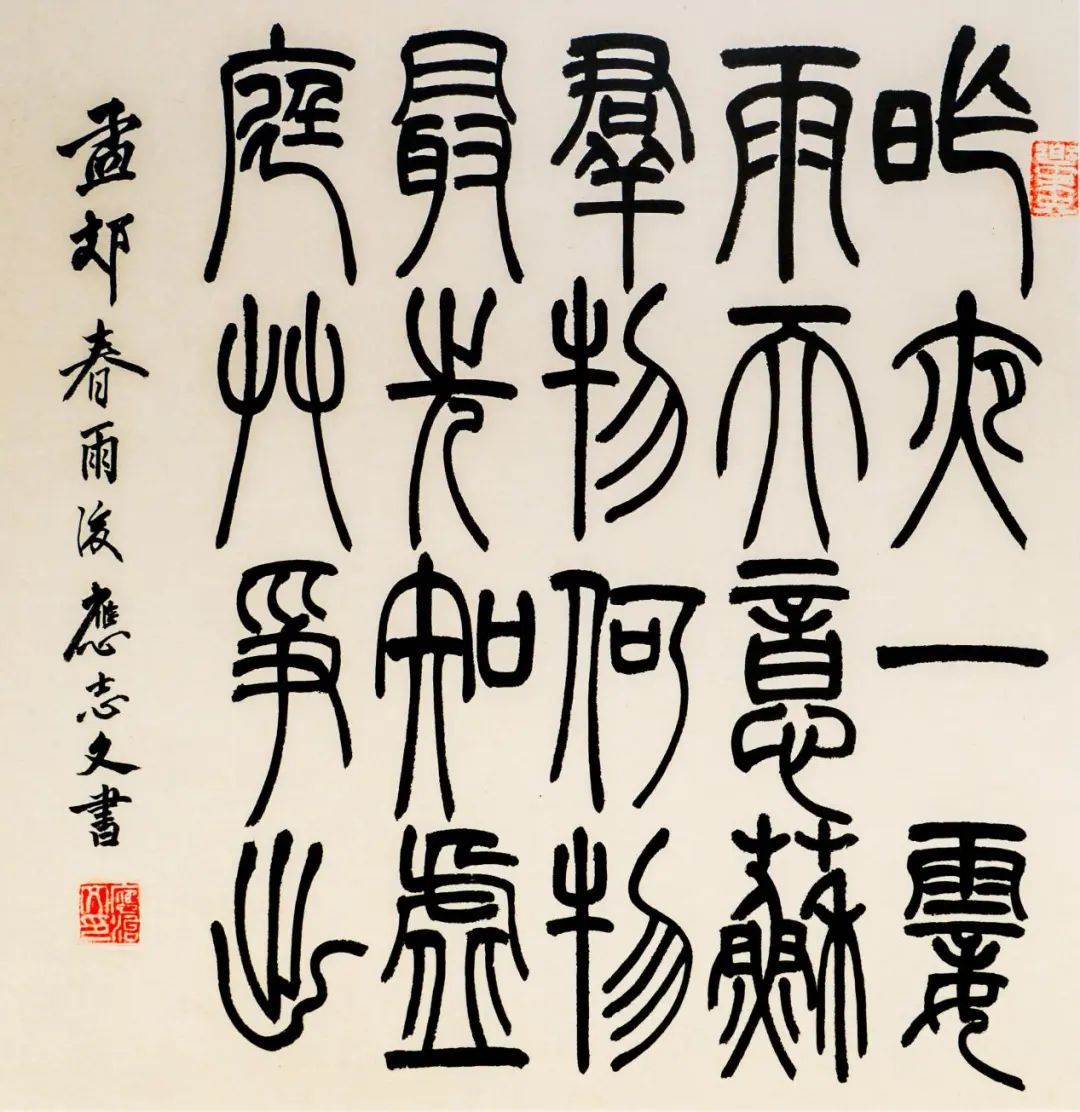 昨夜一霎
雨天意蘇
羣物何物
最先知虛
庭艸爭出
孟郊春雨後應志文書